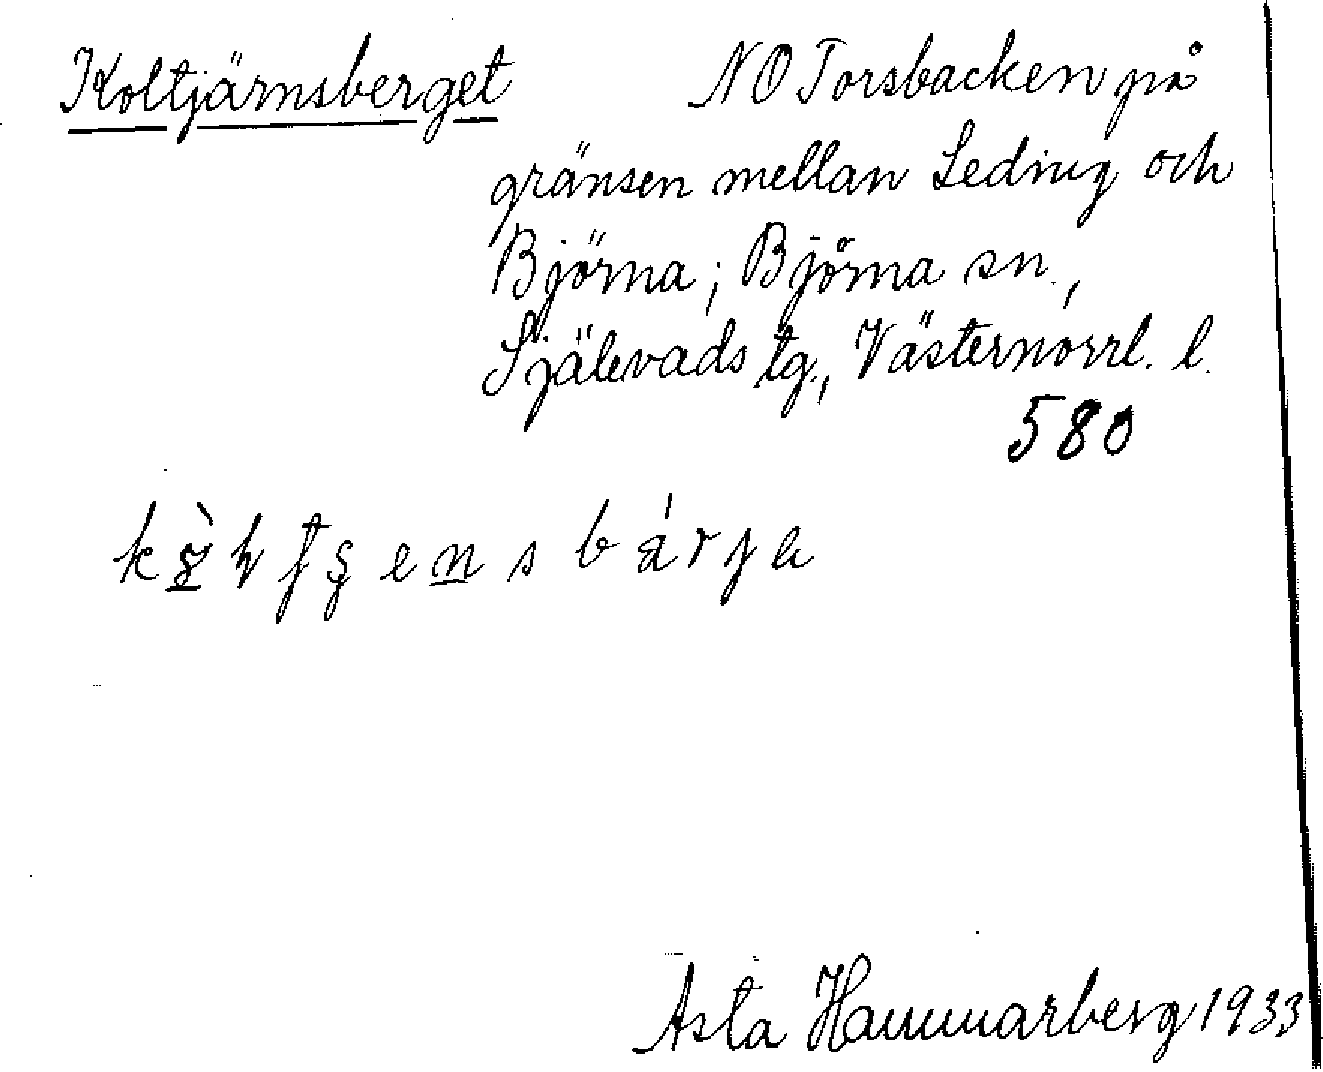 Koltjärnsberget NO Torsbacken på
gränsen mellan Leding och
Björna; Björna sn.,
Själevads tg., Västernorrl. l.
580
Asta Hammarberg 1933